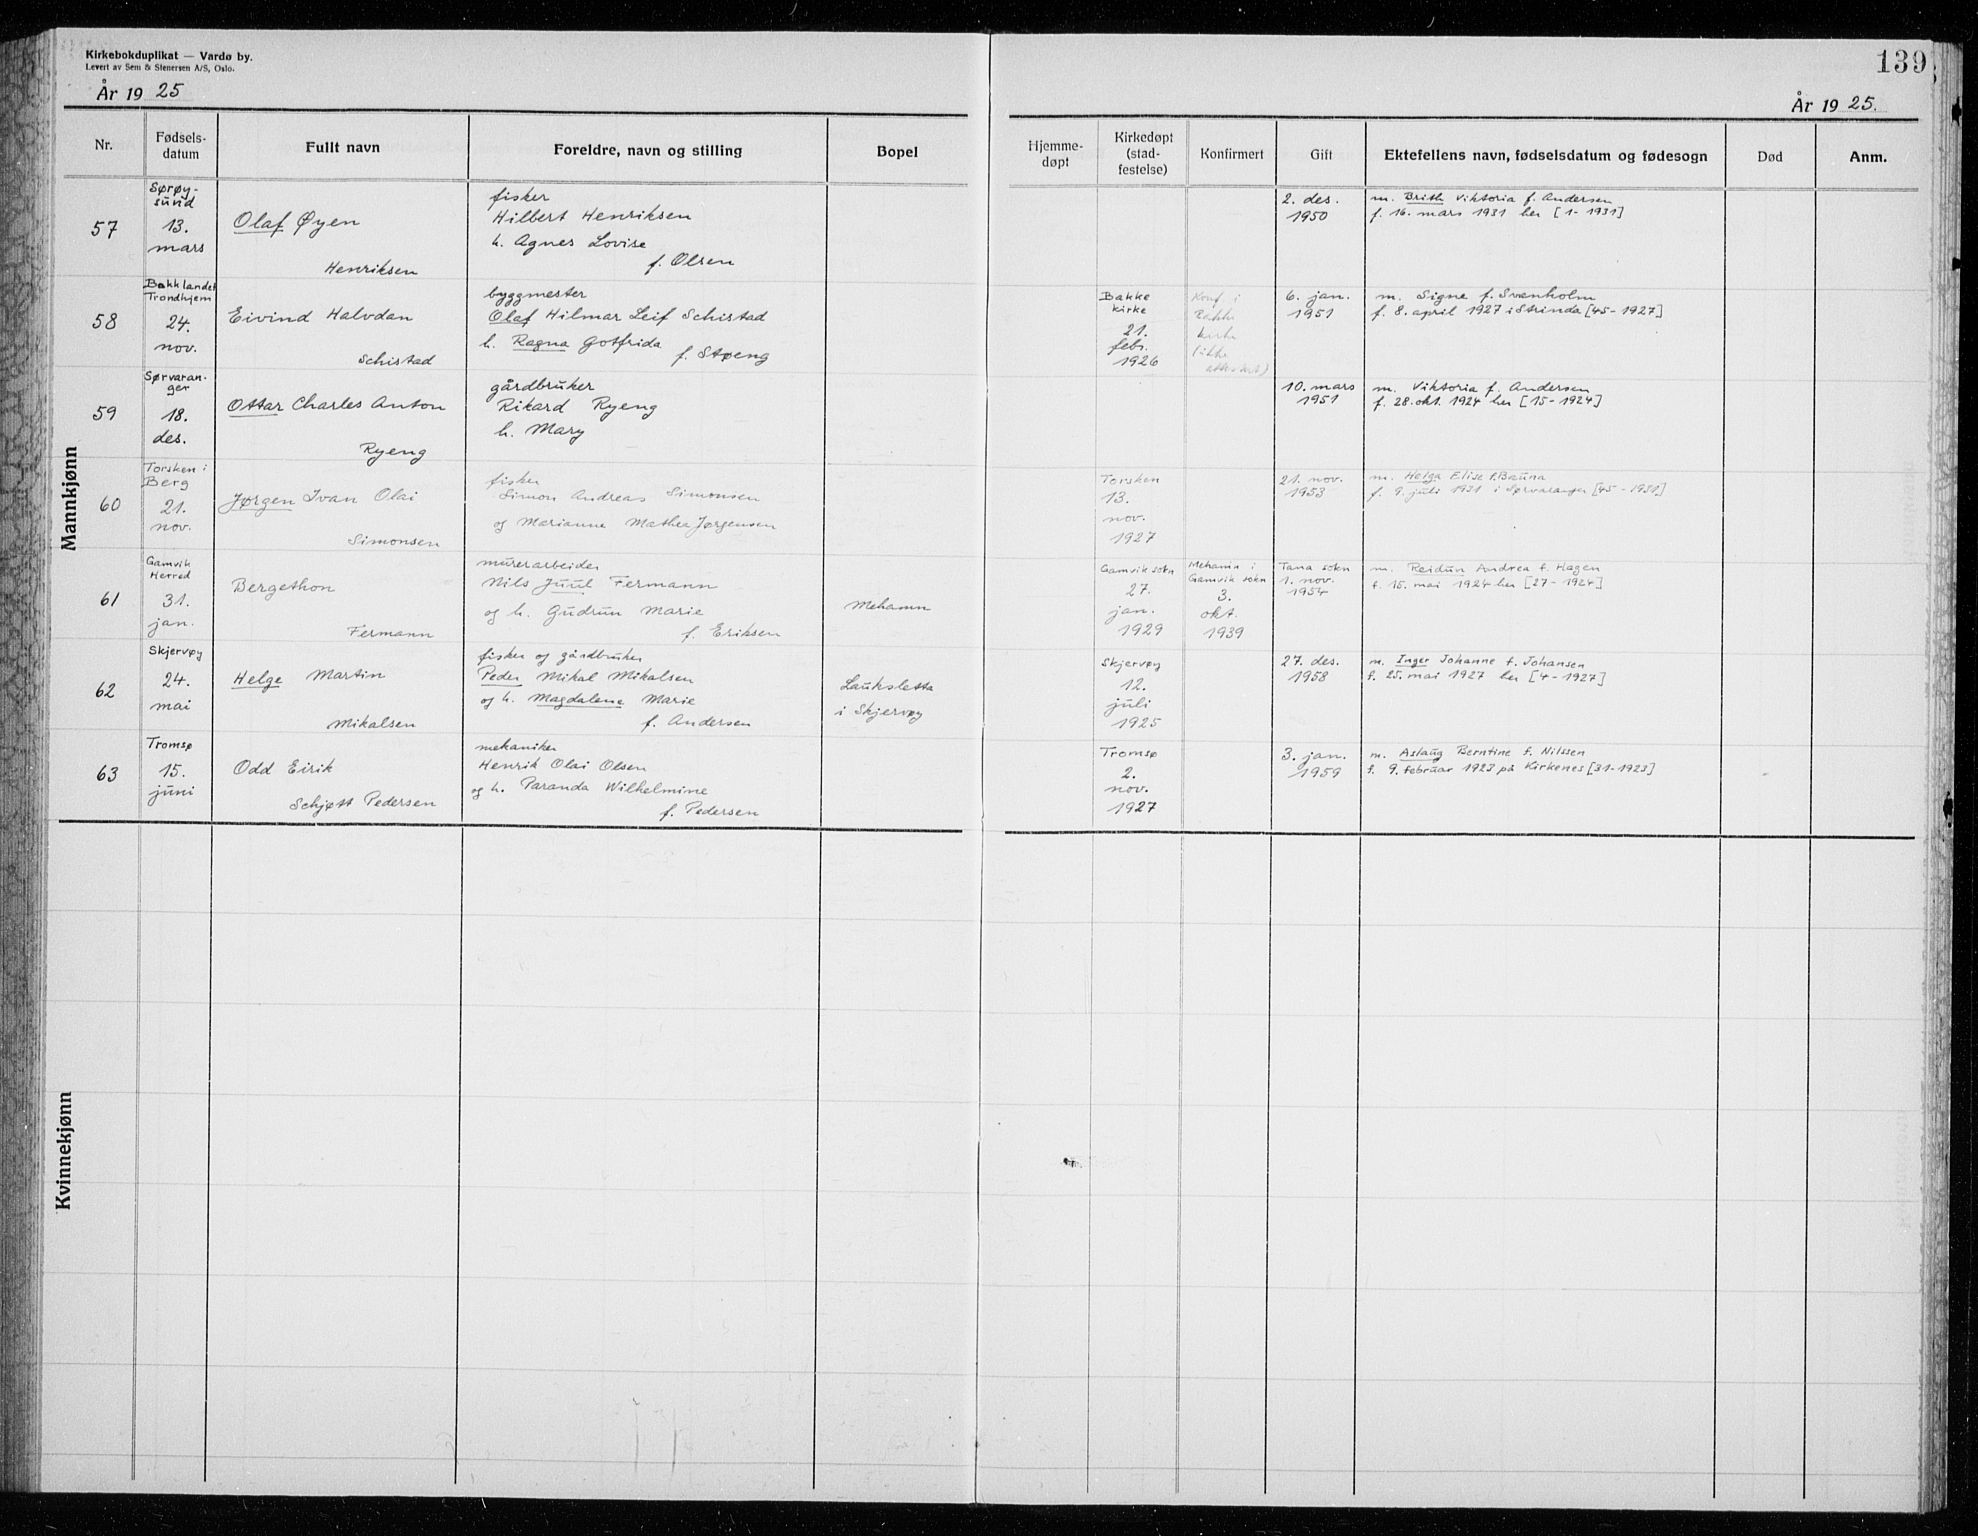 Kirkebokduplikat — Vardø by.
Levert av Sem & Stenersen A/S, Oslo.
År 19 25
139
År 19 25.
Nr.
Fødsels-
datum
Fullt navn
Foreldre, navn og stilling
Bopel
Hjemme-
døpt
Kirkedøpt
(stad-
festelse)
Konfirmert
Gift
Ektefellens navn, fødselsdatum og fødesogn
Død
Anm.
Mannkjønn
57
Sørøy-
sund
13.
mars
Olaf Øyen
Henriksen
fisker
Hilbert Henriksen
h. Agnes Lovise
f. Olsen
2. des.
1950
m. Brith Viktoria f. Andersen
f. 16. mars 1931 her [1-1931]
58
Bakklandet
Trondhjem
24.
nov.
Eivind Halvdan
Schistad
byggmester
Olaf Hilmar Leif Schistad
h. Ragna Gotfrida
f. Støeng
Bakke
kirke
21.
febr.
1926
Konf. i
Bakke
kirke
(ikke
attestert)
6. jan.
1951
m. Signe f. Svenholm
f. 8. april 1927 i Strinda [45-1927]
59
Sørvaran-
ger
18.
des.
Ottar Charles Anton
Ryeng
gårdbruker
Rikard Ryeng
h. Mary
10. mars
1951
m. Viktoria f. Andersen
f. 28. okt. 1924 her [15-1924]
60
Torsken i
Berg
21.
nov.
Jørgen Ivan Olai
Simonsen
fisker
Simon Andreas Simonsen
og Marianne Mathea Jørgensen
Torsken
13.
nov.
1927
21. nov.
1953
m. Helga Elise f. Bauna
f. 9. juli 1931 i Sørvaranger [45-1931]
61
Gamvik
Herred
31.
jan.
Bergethon
Fermann
murerarbeider
Nils Juul Fermann
og h. Gudrun Marie
f. Eriksen
Mehamn
Gamvik sokn
27.
jan.
1929
Mehamn i
Gamvik sokn
3.
okt.
1939
Tana sokn
1. nov.
1954
m. Reidun Andrea f. Hagen
f. 15. mai 1924 her [27-1924]
62
Skjervøy
24.
mai
Helge Martin
Mikalsen
fisker og gårdbruker
Peder Mikal Mikalsen
og h. Magdalene Marie
f. Andersen
Lauksletta
i Skjervøy
Skjervøy
12.
juli
1925
27. des.
1958
m. Inger Johanne f. Johansen
f. 25. mai 1927 her [4-1927]
63
Tromsø
15.
juni
Odd Eirik
Schjøtt Pedersen
mekaniker
Henrik Olai Olsen
og h. Paranda Wilhelmine
f. Pedersen
Tromsø
2.
nov.
1927
3. jan.
1959
m. Aslaug Berntine f. Nilssen
f. 9. februar 1923 på Kirkenes [31-1923]
Kvinnekjønn